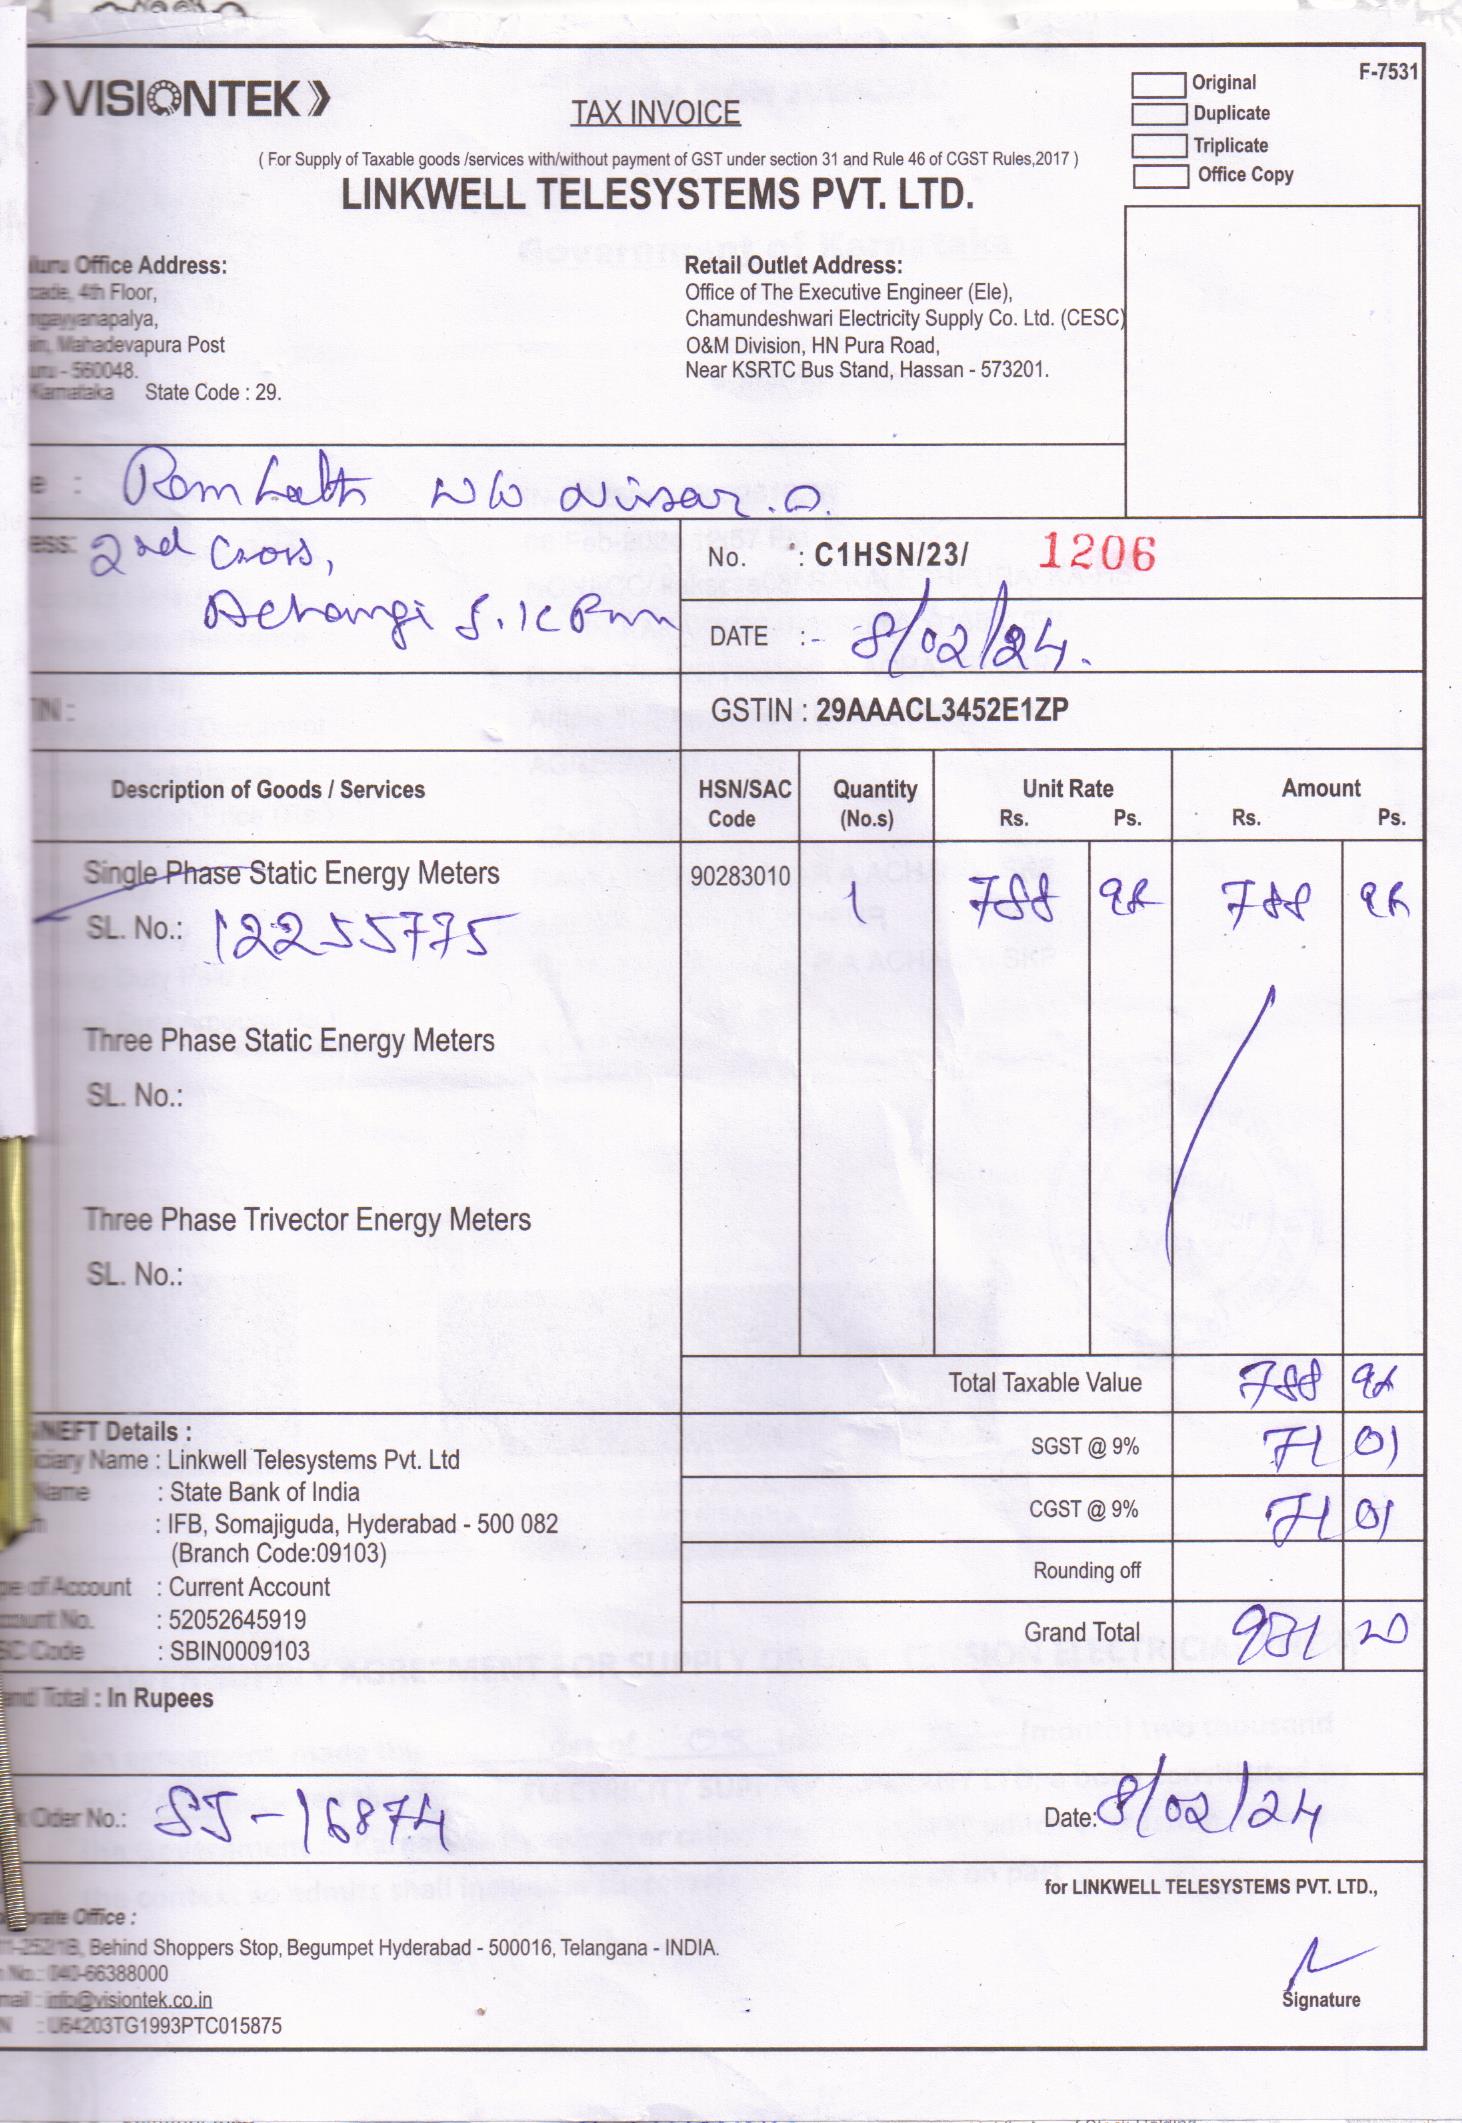 VISIONTEK
F-7531
Original
Duplicate
Triplicate
Office Copy
TAX INVOICE
( For Supply of Taxable goods /services with/without payment of GST under section 31 and Rule 46 of CGST Rules,2017 )
LINKWELL TELESYSTEMS PVT. LTD.
Office Address:
4th Floor,
Mahadevapura Post
- 560048.
Karnataka State Code : 29.
Retail Outlet Address:
Office of The Executive Engineer (Ele),
Chamundeshwari Electricity Supply Co. Ltd. (CESC)
O&M Division, HN Pura Road,
Near KSRTC Bus Stand, Hassan - 573201.
2nd Cross,
No. : C1HSN/23/ 1206
DATE :- 8/02/24.
GSTIN : 29AAACL3452E1ZP
Description of Goods / Services HSN/SAC Code Quantity (No.s) Unit Rate Rs. Ps. Amount Rs. Ps.
Single Phase Static Energy Meters 90283010 1 788 98 788 98
SL. No.: 12255775
Three Phase Static Energy Meters
SL. No.:
Three Phase Trivector Energy Meters
SL. No.:
Total Taxable Value 788 98
SGST @ 9% 71 01
CGST @ 9% 71 01
Rounding off
Grand Total 931 20
NEFT Details :
Name : Linkwell Telesystems Pvt. Ltd
Name : State Bank of India
: IFB, Somajiguda, Hyderabad - 500 082
(Branch Code:09103)
of Account : Current Account
No. : 52052645919
Code : SBIN0009103
Total : In Rupees
Oder No.: SJ-16874
Date: 8/02/24
for LINKWELL TELESYSTEMS PVT. LTD.,
Signature
Office :
Behind Shoppers Stop, Begumpet Hyderabad - 500016, Telangana - INDIA.
No.: 040-66388000
: info@visiontek.co.in
: U64203TG1993PTC015875